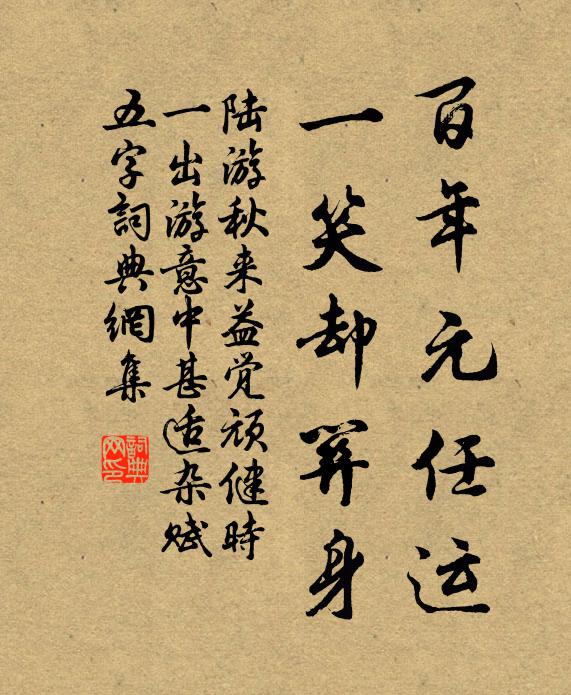 百年元任运
一笑却关身
陆游秋来益觉顽健時
一出游意中甚适杂赋
五字詞典網集
詞典
网印